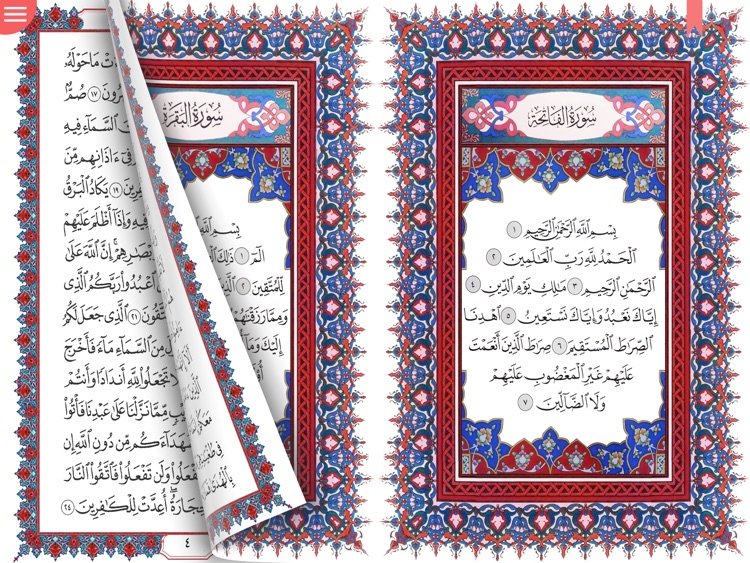 سُورَةُ ٱلْفَاتِحَةِ
بِسْمِ ٱللَّهِ ٱلرَّحْمَٰنِ ٱلرَّحِيمِ ١
ٱلْحَمْدُ لِلَّهِ رَبِّ ٱلْعَٰلَمِينَ ٢
ٱلرَّحْمَٰنِ ٱلرَّحِيمِ ٣ مَٰلِكِ يَوْمِ ٱلدِّينِ ٤
إِيَّاكَ نَعْبُدُ وَإِيَّاكَ نَسْتَعِينُ ٥ ٱهْدِنَا
ٱلصِّرَٰطَ ٱلْمُسْتَقِيمَ ٦ صِرَٰطَ ٱلَّذِينَ أَنْعَمْتَ
عَلَيْهِمْ غَيْرِ ٱلْمَغْضُوبِ عَلَيْهِمْ
وَلَا ٱلضَّآلِّينَ ٧
سُورَةُ ٱلْبَقَرَةِ
بِسْمِ ٱللَّهِ
الٓمٓ ١ ذَٰلِكَ
لِّلْمُتَّقِينَ ٢
وَمِمَّا رَزَقْنَٰهُمْ
إِلَيْكَ وَمَآ
مَا حَوْلَهُۥ
١٧ صُمٌّۢ
ٱلسَّمَآءِ فِيهِ
فِىٓ ءَاذَانِهِم مِّنَ
١٩ يَكَادُ ٱلْبَرْقُ
فِيهِ وَإِذَآ أَظْلَمَ عَلَيْهِمْ
إِنَّ ٱللَّهَ عَلَىٰ
ٱعْبُدُوا۟ رَبَّكُمُ ٱلَّذِى
٢١ ٱلَّذِى جَعَلَ لَكُمُ
مِنَ ٱلسَّمَآءِ مَآءً فَأَخْرَجَ
تَجْعَلُوا۟ لِلَّهِ أَندَادًا وَأَنتُمْ
مِّمَّا نَزَّلْنَا عَلَىٰ عَبْدِنَا فَأْتُوا۟
مِّن دُونِ ٱللَّهِ إِن
وَلَن تَفْعَلُوا۟ فَٱتَّقُوا۟ ٱلنَّارَ
أُعِدَّتْ لِلْكَٰفِرِينَ ٢٤
٤